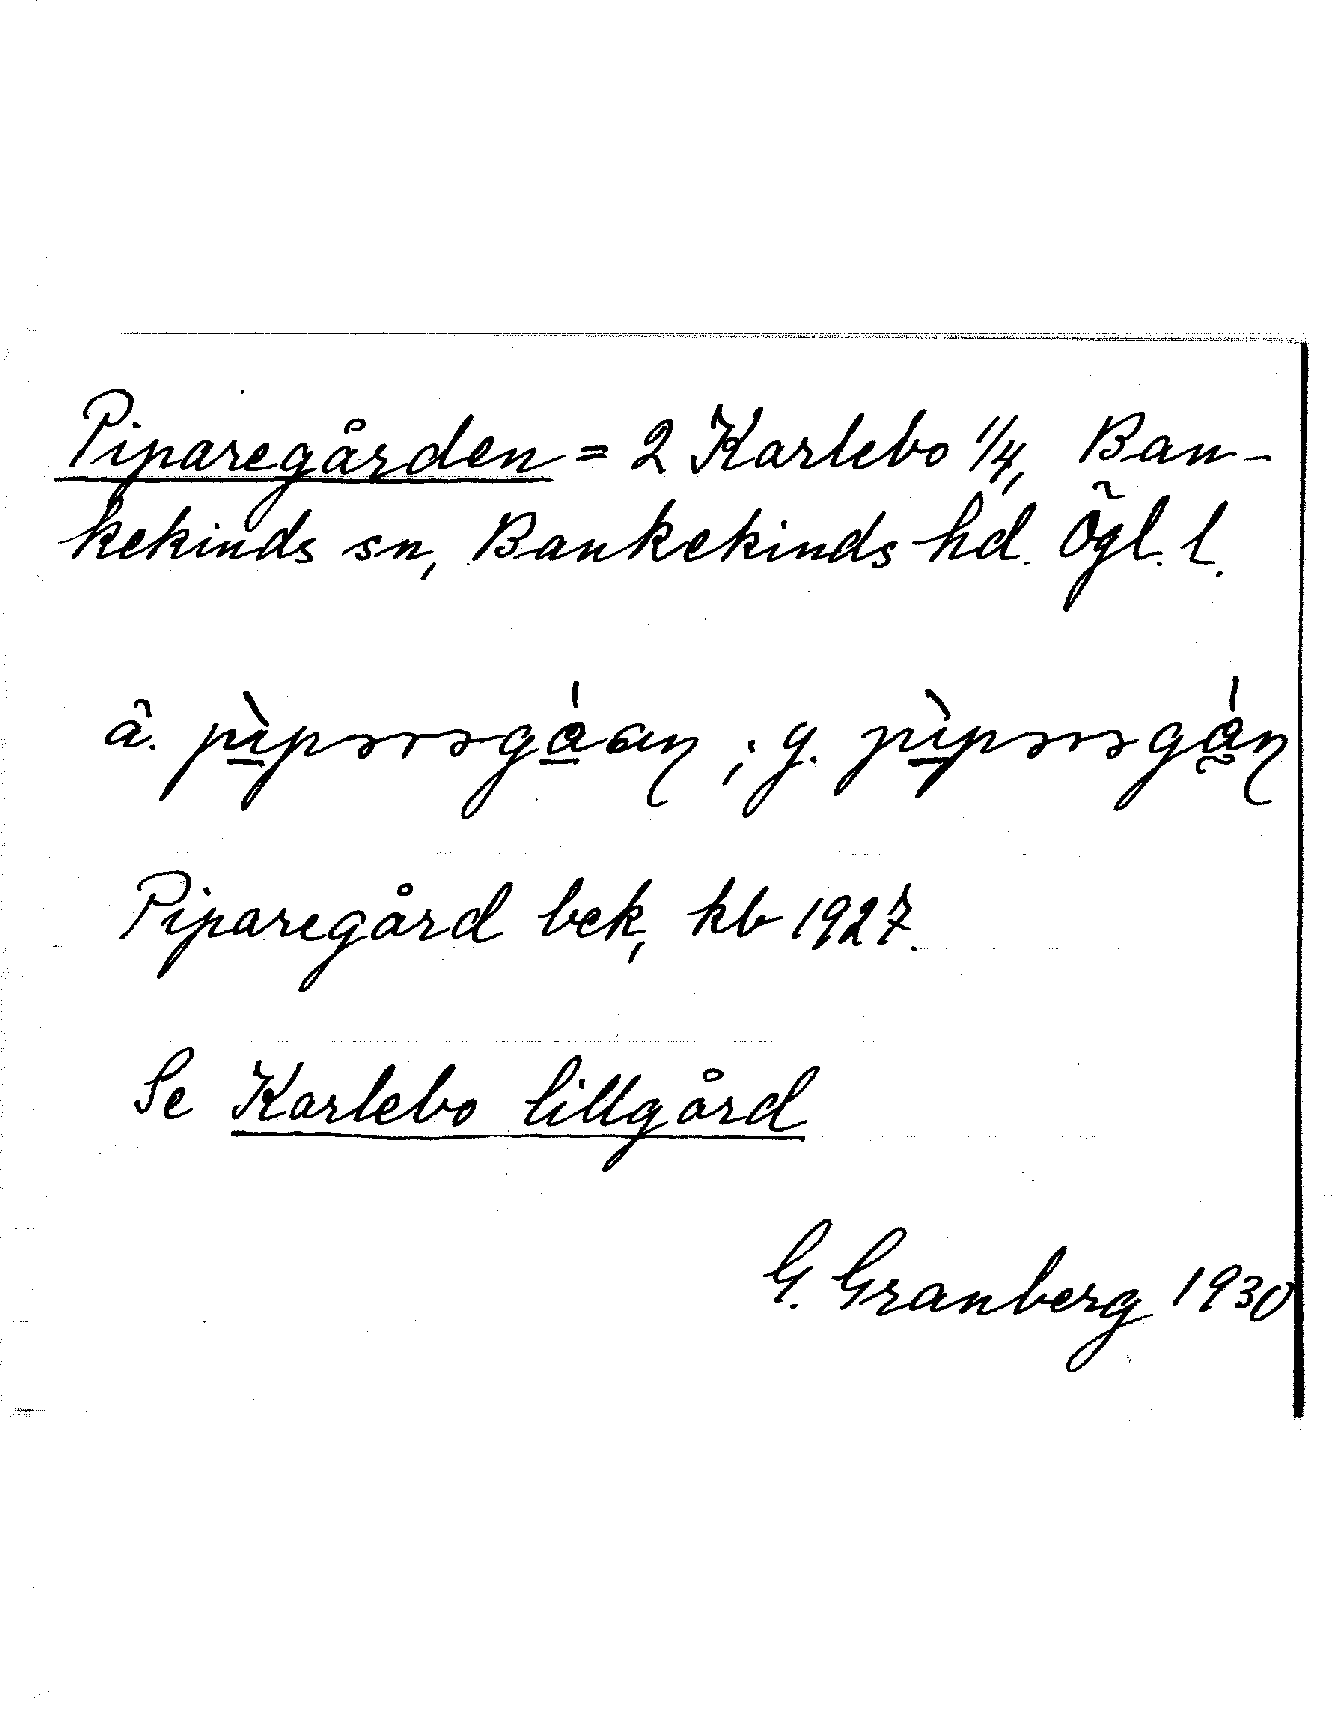 Piparegården = 2 Karlebo 1/4, Ban-
kekinds sn, Bankekinds hd. Ögl. l.
â. ; g.
Piparegård bek, kb 1927.
Se Karlebo lillgård
G. Granberg 1930